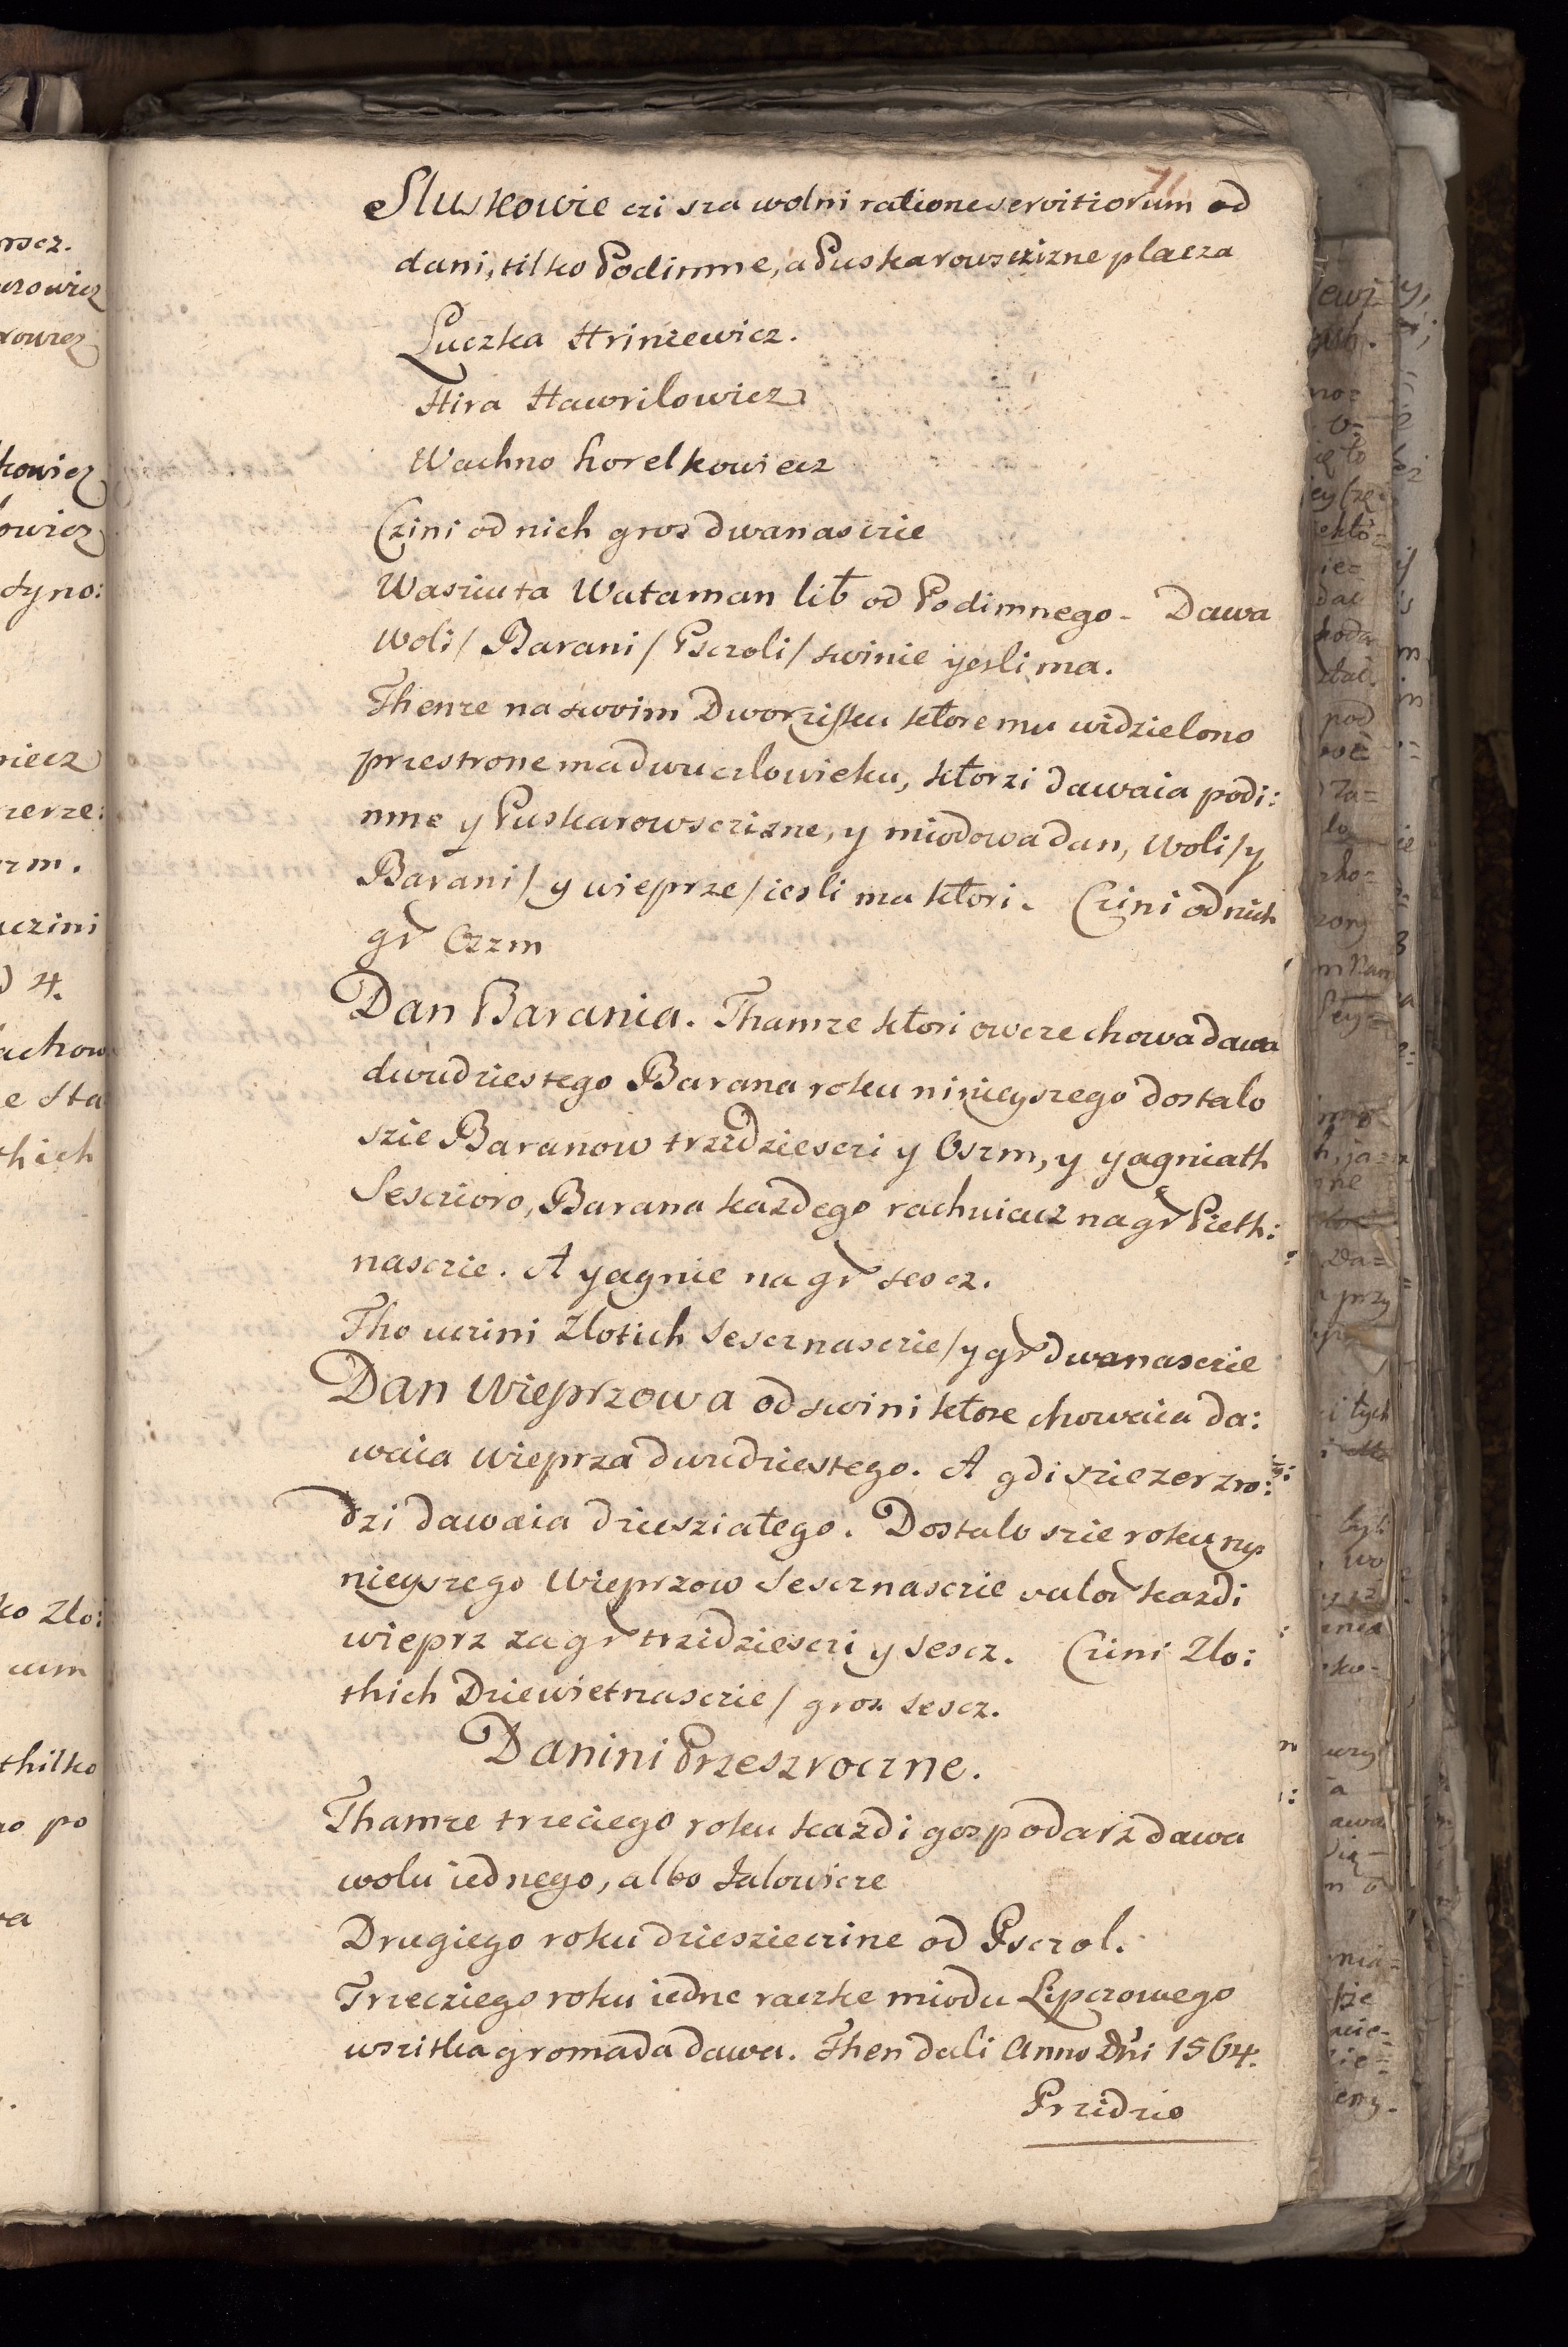 71
Sluskowie czi sza wolni ratione servitiorum od
dani, tilko Podimne, a Puskarowsczizne placza
Luczka Hrinzewicz.
Hira Hawrilowicz
Wachno horelkowiecz
Czini od nich gros dwanascie
Wasiuta Wataman lib od Podimnego. Dawa
Woli / Barani / Psczoli / swinie yesli ma.
Thenze na swoim Dworzisku ktore mu widzielono
przestrone ma dwu czlowieku, ktorzi dawaia podi:
mne y Puskarowsczizne, y miodowa dan, Woli / y
Barani / y wieprze / iesli ma ktori. Czini od nich
gr Ozzm
Dan Barania. Thamze ktori owcze chowa dawa
dwudziestego Barana roku ninieyszego dostalo
szie Baranow trzidziesczi y Oszm, y yagniath
Sesczioro, Barana kazdego rachuiacz na gr Pieth:
nasczie. A yagnie na gr sescz.
Tho uczini Zlotich Sesznasczie / y gr dwanasczie
Dan Wieprzowa od swini ktore chowaia da:
waia wieprza dwudziestego. A gdi szie zer zro:
dzi dawaia dziesziatego. Dostalo szie roku ny:
nieyszego Wieprzow Sesznasczie valor kazdi
wieprz za gr trzidziesczi y Sescz. Czini Zlo:
thich Dziewietnasczie / gros sescz.
Danini Przeszroczne.
Thamze trzeciego roku kazdi gospodarz dawa
wolu iednego, albo Ialowicze
Drugiego roku dziesziecine od Psczol.
Trzecziego roku iedne raczke miodu Lipczowego
wszitka gromada dawa. Then dali Anno Dni 1564.
Przidzio